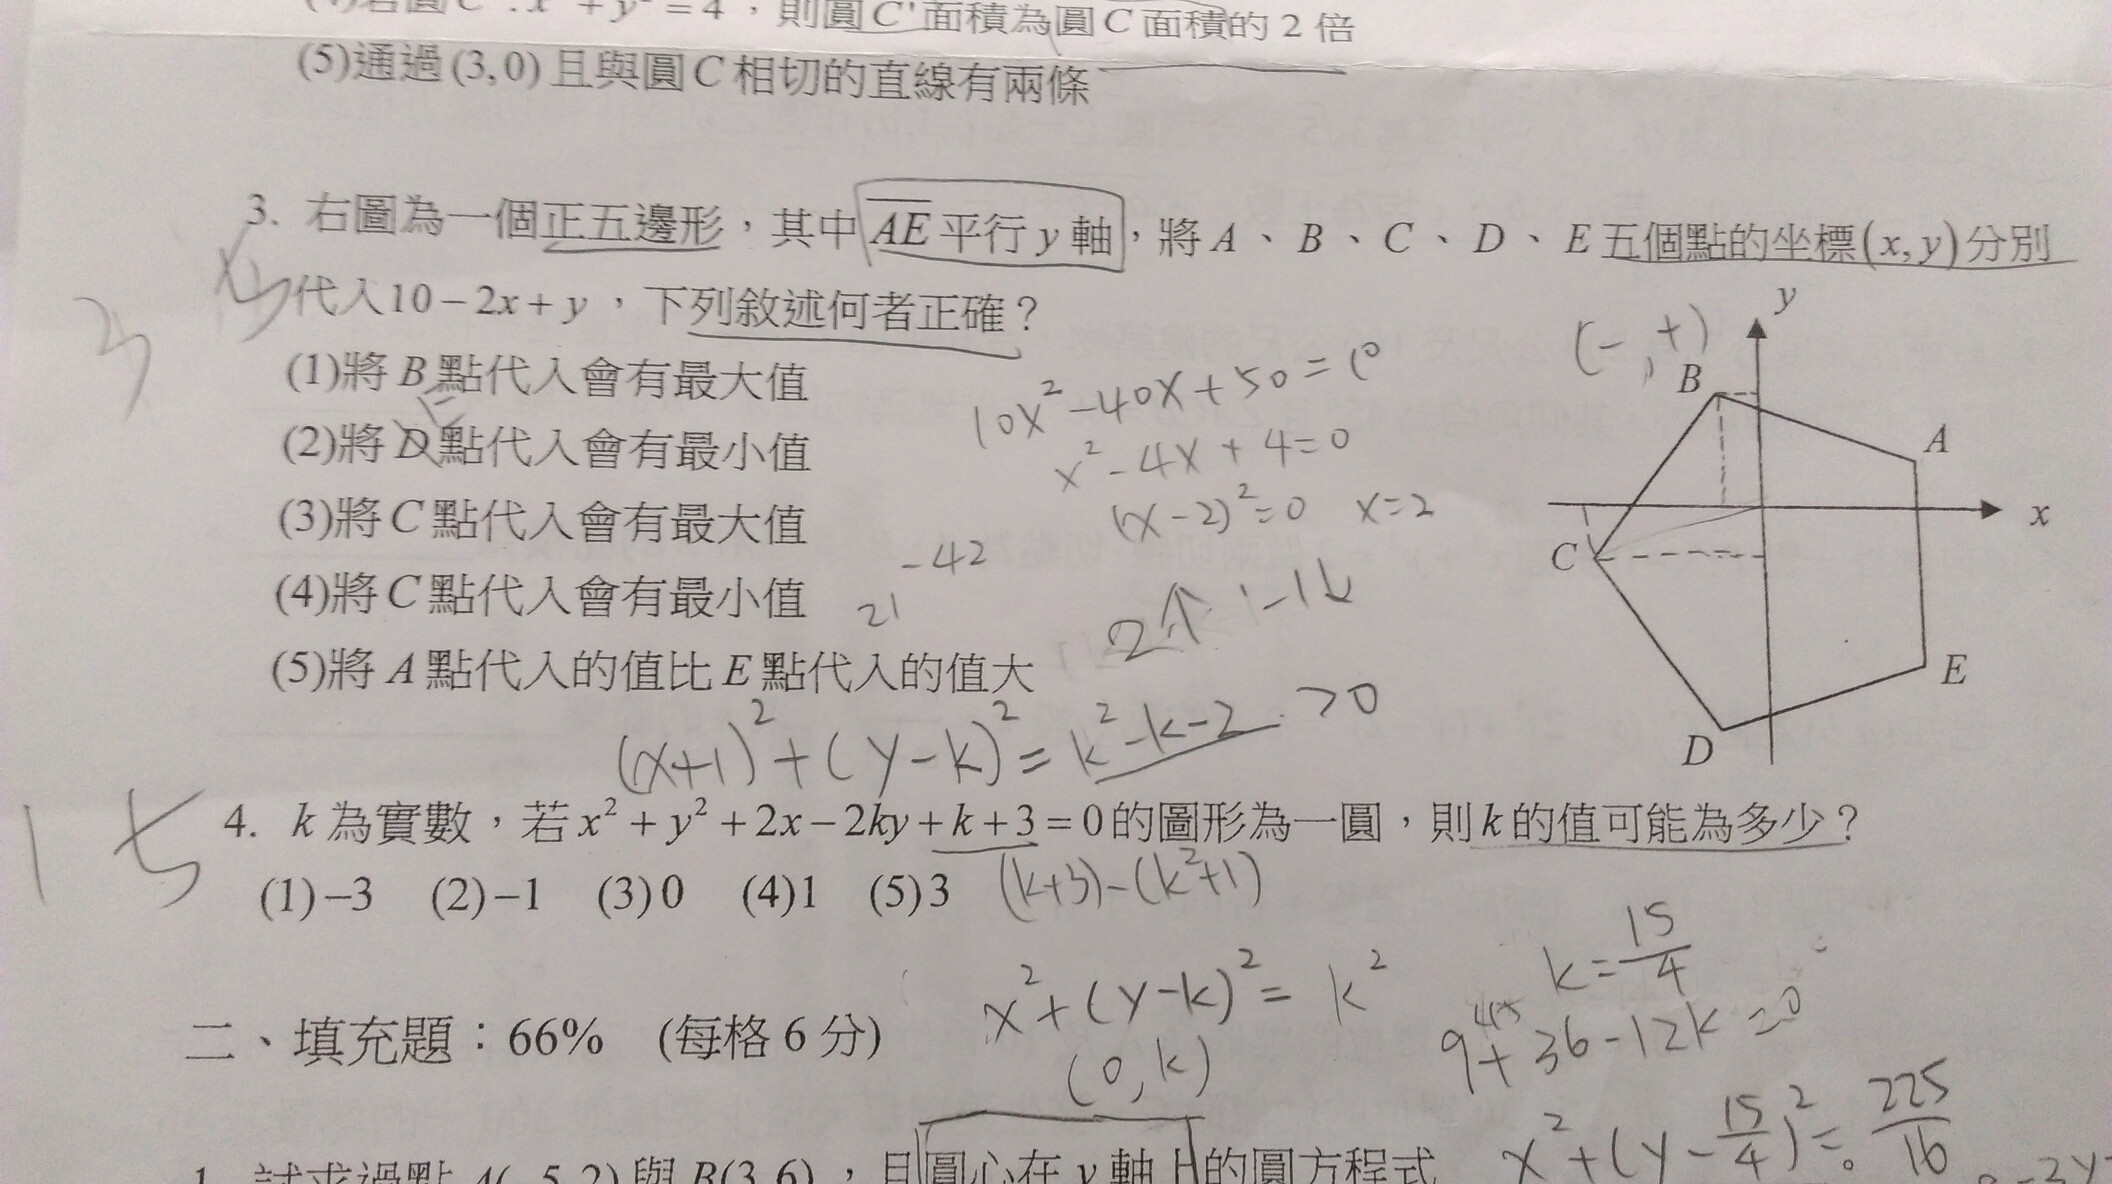 (4)若圓C':x²+y²=4，則圓C'面積為圓C面積的2倍
(5)通過(3,0)且與圓C相切的直線有兩條
3. 右圖為一個正五邊形，其中AE平行y軸，將A、B、C、D、E五個點的坐標(x,y)分別
代入10-2x+y，下列敘述何者正確？
(1)將B點代入會有最大值
(2)將D點代入會有最小值
E
(3)將C點代入會有最大值
(4)將C點代入會有最小值
(5)將A點代入的值比E點代入的值大
3
10x²-40x+50=10
x²-4x+4=0
(x-2)²=0 x=2
-42
21
2↑ -1↓
(-,+)
y
B
A
x
C
E
D
(x+1)²+(y-k)²=k²-k-2>0
15
4. k為實數，若x²+y²+2x-2ky+k+3=0的圖形為一圓，則k的值可能為多少？
(1)-3 (2)-1 (3)0 (4)1 (5)3
(k+3)-(k²+1)
二、填充題：66% (每格6分)
x²+(y-k)²=k²
(0,k)
k=15/4
9+36-12k=0
x²+(y-15/4)²=225/16
1. 試求過點A(-5,2)與B(3,6)，且圓心在y軸上的圓方程式